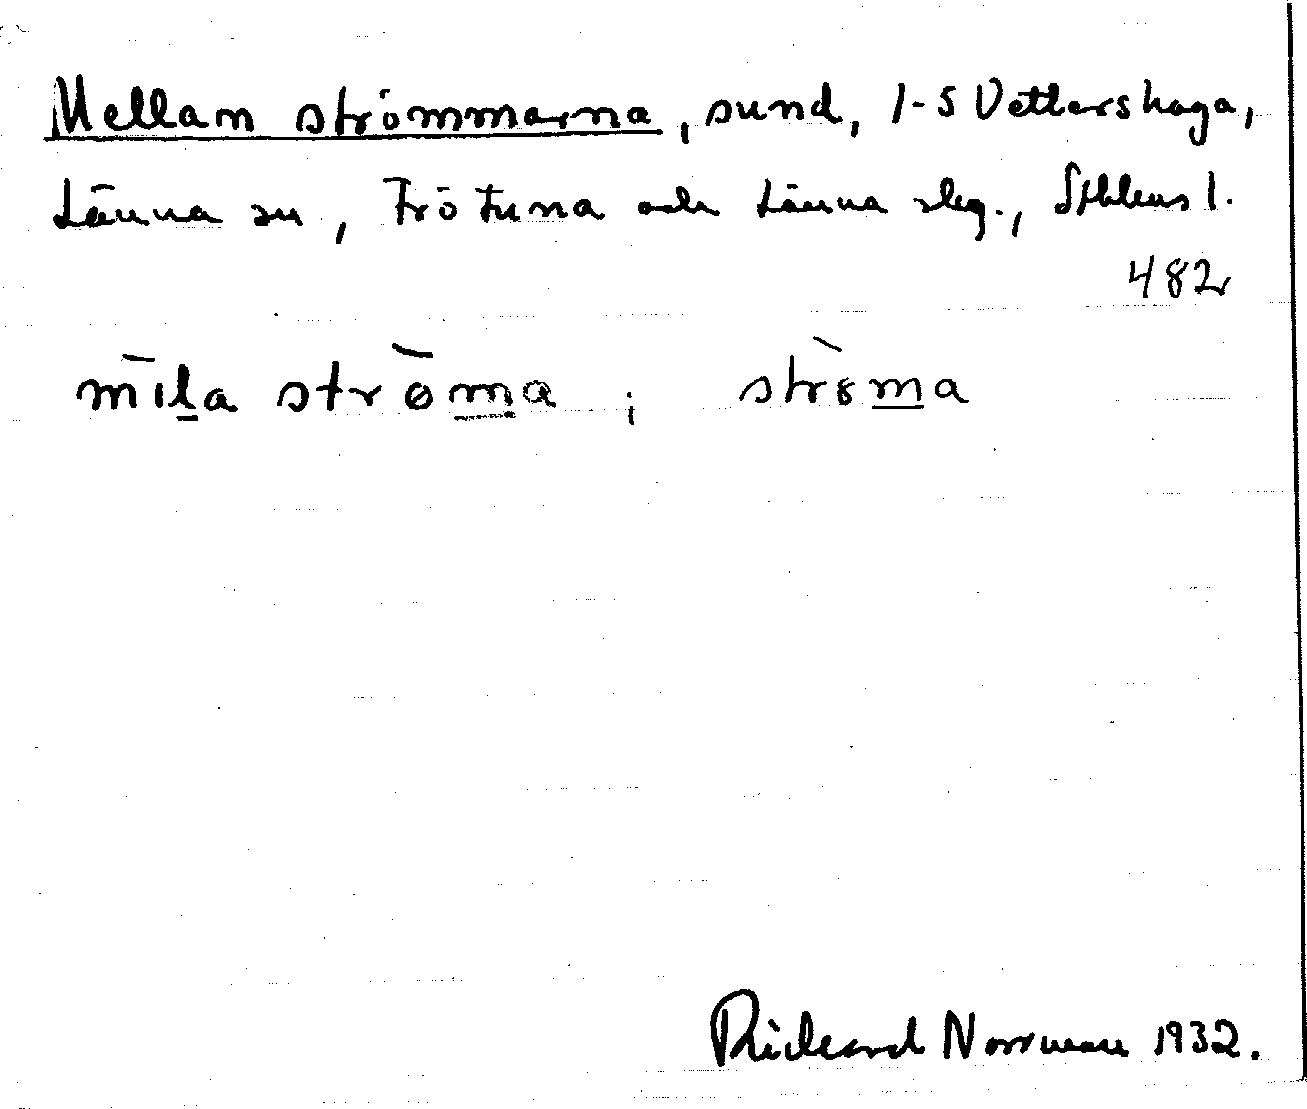 Mellan strömmarna, sund, 1-5 Vettershaga,
Länna sn, Frötuna och Länna slg., Sthlms l.
482
mila strøma ; ströma
Rickard Norrman 1932.